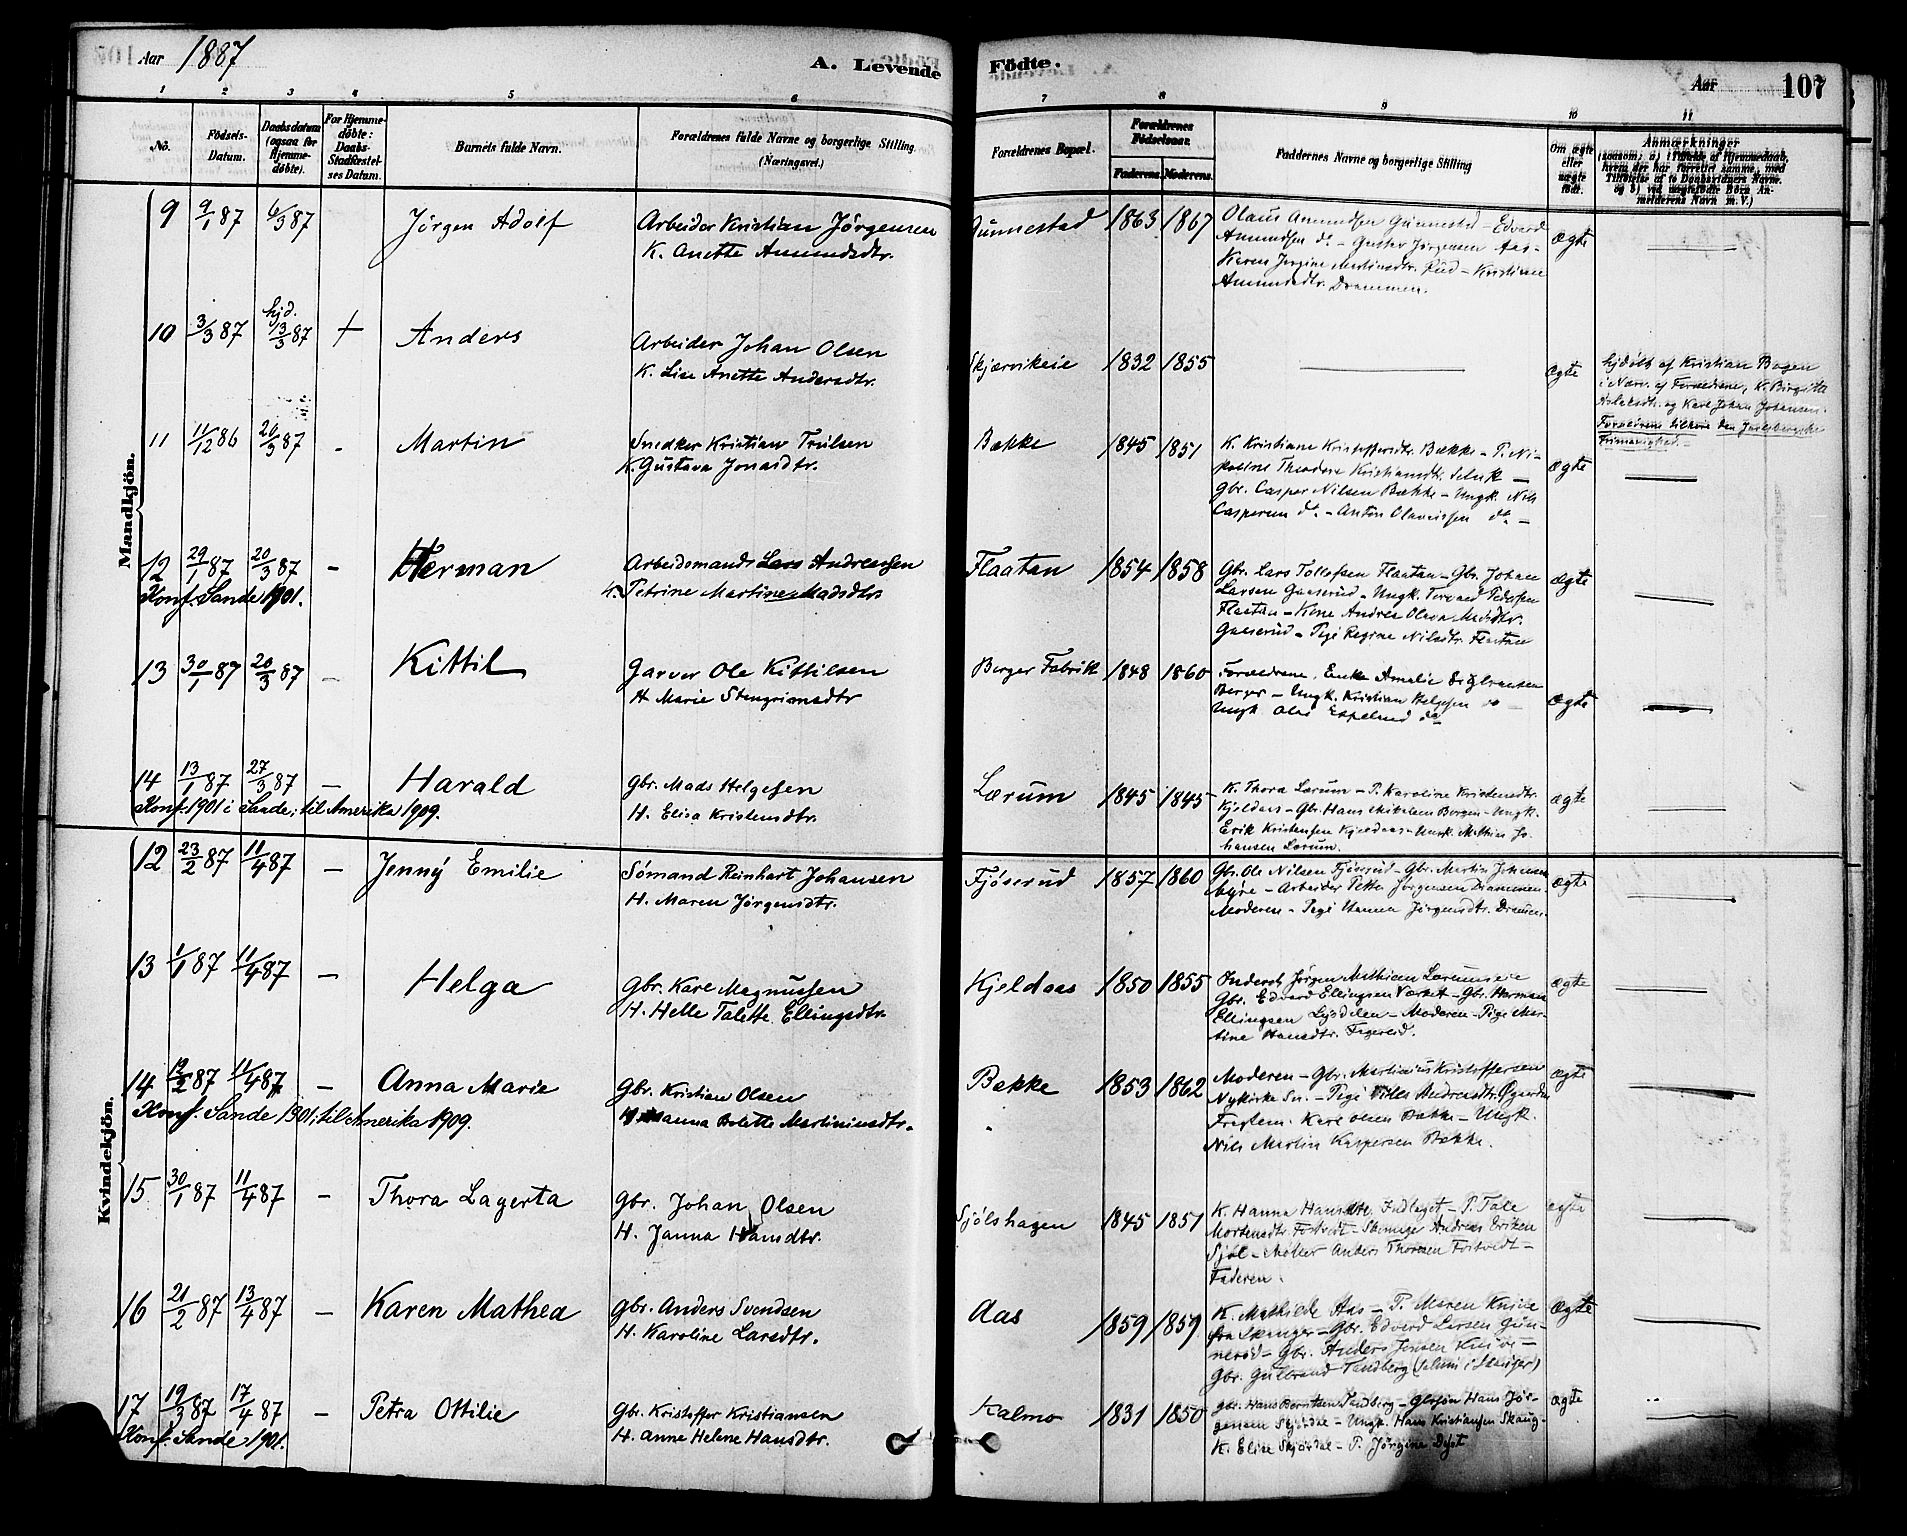 Aar 1887
A. Levende
Födte.
Aar
107
1 2 3 4 5 6 7 8 9 10 11
No.
Födsels-
Datum.
Daabsdatum
(ogsaa for
Hjemme-
döbte).
For Hjemme-
döbte:
Daabs-
Stadfæstel-
ses Datum.
Barnets fulde Navn.
Forældrenes fulde Navne og borgerlige Stilling
(Næringsvei.)
Forældrenes Bopæl.
Forældrenes
Födselsaar.
Faderens. Moderens.
Faddernes Navne og borgerlige Stilling
Om ægte
eller
uægte
födt.
Anmærkninger
Mandkjön.
9 9/1 87 6/3 87 Jörgen Adolf
Arbeider Kristian Jörgensen
K. Anette Amundsdtr.
Gunnestad 1863 1867
Olaus Amundsen Gunnestad - Edvard
Amundsen do. - Gustav Jörgensen Aas -
Karen Jörgine Martinsdtr. Rud - Kristiane
Amundsdtr. Drammen.
Ægte
10 3/3 87 hjd. 13/3 87 + Anders
Arbeider Johan Olsen
K. Lise Anette Andersdtr.
Skjærvikeie 1832 1855
Ægte
hjdöbt af Kristian Bogen
i Nærv. af Forældrene, K. Birgitte
og Karl Johan Johansen.
Forældrene tilhöre den Jarlsbergske
Frimenighed. -
11 11/12 86 20/3 87 - Martin
Snedker Kristian Trulsen
K. Gustava Jonasdtr.
Bække 1845 1851
K. Kristiane Kristoffersdtr. Bække - P. Ni-
koline Theodora Kristiansdtr. Selvik -
Gbr. Casper Nilsen Bække - Ungk. Nils
Caspersen do. - Anton Olavessen do. -
Ægte
12 29/1 87 20/3 87 - Herman
Konf. Sande 1901.
Arbeidsmand Lars Andreassen
K. Petrine Martine Madsdtr.
Flaatan 1854 1858
Gbr. Lars Tollefsen Flaatan - Gbr. Johan
Larsen Gaaserud - Ungk. Torvald Pedersen
Flaatan - Kone Andrea Olava Madsdtr.
Gaaserud - Pige Regine Nilsdtr. Flaatan
Ægte
13 30/1 87 20/3 87 - Kittil
Garver Ole Kittilsen
H. Marie Stengrimsdtr
Berger Fabrik 1848 1860
Forældrene, Enke Amalie
Berger - Ungk. Kristian Helgesen do -
Ungk. Olai Espelund do
Ægte
14 13/1 87 27/3 87 - Harald
Konf. 1901 i Sande; til Amerika 1909.
Gbr. Mads Helgesen
H. Elisa Kristensdtr.
Lærum 1845 1845
K. Thora Lærum - P. Karoline Kristensdtr.
Kjeldaas - Gbr. Hans Mikalsen Borgen - Ungk.
Erik Kristensen Kjeldaas - Ungk. Mathias Jo-
hansen Lærum.
Ægte
Kvindekjön.
12 23/2 87 11/4 87 - Jenny Emilie
Sömand Reinhart Johansen
H. Maren Jörgensdtr.
Fjöserud 1857 1860
Gbr. Ole Nilsen Fjöserud - Gbr. Martin Johansen
Myre - Arbeider Petter Jörgensen Drammen -
Moderen - Pige Hanna Jörgensdtr. Drammen.
Ægte
13 1/1 87 11/4 87 - Helga
Gbr. Karl Magnussen
H. Helle Talette Ellingsdtr.
Kjeldaas 1850 1855
Inderst Jörgen Mathisen Lærumseie
Gbr. Edvard Ellingsen Værket - Gbr. Herman
Ellingsen - Moderen - Pige Mar-
tine Hansdtr.
Ægte
14 12/2 87 11/4 87 - Anna Marie
Konf. Sande 1901; til Amerika 1909.
Gbr. Kristian Olsen
H. Hanna Bolette Martiniusdtr.
Bække 1853 1862
Moderen - Gbr. Martinius Kristoffersen
Nykirke Sn. - Pige Andreasdtr.
Karl Olsen Bække - Ungk.
Nils Martin Kaspersen Bække.
Ægte
15 30/1 87 11/4 87 - Thora Lagerta
Gbr. Johan Olsen
H. Janna Hansdtr.
Sjölshagen 1845 1851
K. Hanna Hansdtr. Indlaget - P. Tale
Mortensdtr. Fostvedt - Andreas Eriksen
Sjöl - Möller Anders Thoresen Fostvedt -
Faderen.
Ægte
16 21/2 87 13/4 87 - Karen Mathea
Gbr. Anders Svendsen
H. Karoline Larsdtr.
Aas 1859 1859
K. Mathilde Aas - P. Maren Knive
fra Skouger - Gbr. Edvard Larsen Gun-
nerød - Gbr. Anders Jensen Knive -
Gbr. Gulbrand Tandberg (i Skouger)
Ægte
17 19/3 87 17/4 87 - Petra Ottilie
Konf. Sande 1901.
Gbr. Kristoffer Kristiansen
H. Anne Helene Hansdtr.
Kalmo 1831 1850
Gbr. Hans Berntsen Tandberg - Hans Jör-
gensen Skjördal - Ungk. Hans Kristiansen Skaug -
K. Elise Skjördal - P. Jörgine
Ægte